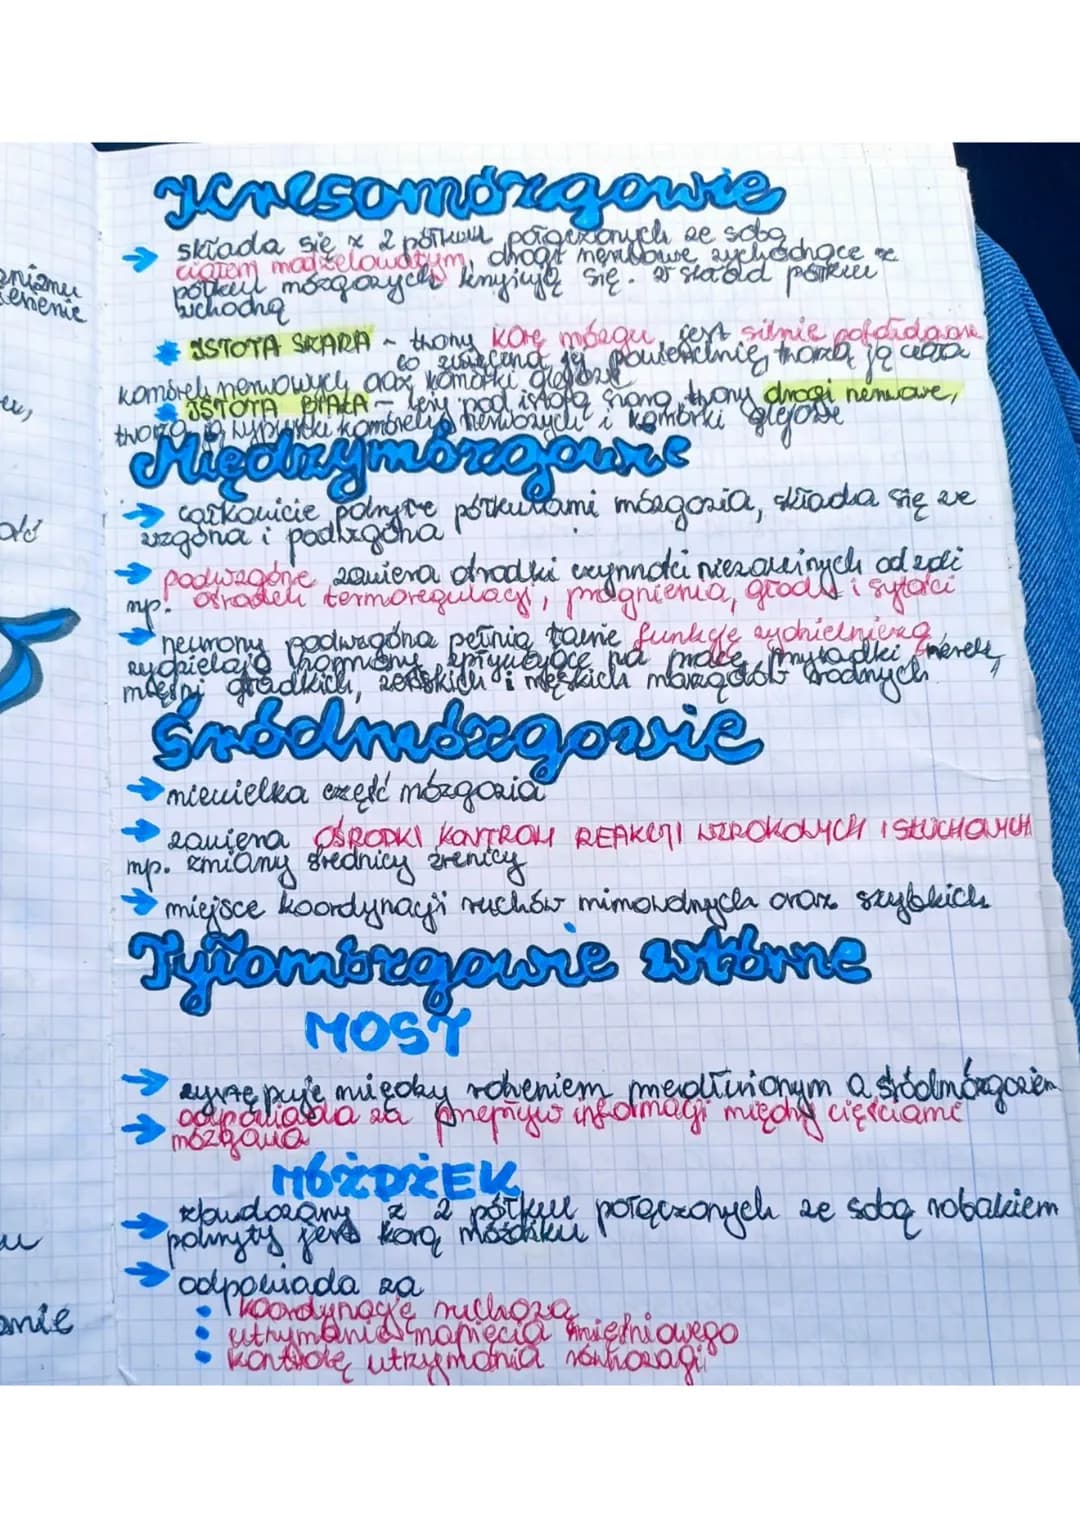 Kresomózgowie
→ składa się z 2 półkul połączonych ze sobą
ciałem modzelowatym, drogi nerwowe wychodzące z
półkul mózgowych krzyżują się. w skład półkul
wchodną
ISTOTA SZARA - tworzy korę mózgu, jest silnie pofałdowana
co zwiększa jej powierzchnię, tworzą ją ciała
komórek nerwowych oraz komórki glejowe
ISTOTA BIAŁA - leży pod istotą szarą, tworzy drogi nerwowe,
tworzą ją wypustki komórek nerwowych i komórki glejowe
Międzymózgowie
→ całkowicie pokryte półkulami mózgowia, składa się ze
wzgórza i podwzgórza
→ podwzgórze zawiera ośrodki czynności niezależnych od woli
np. ośrodek termoregulacji, pragnienia, głodu i sytości
→ neurony podwzgórza pełnią także funkcję wydzielniczą,
wydzielają hormony wpływające na pracę przysadki, nerek,
mięśni gładkich, żeńskich i męskich narządów rodnych
Śródmózgowie
→ niewielka część mózgowia
→ zawiera OŚRODKI KONTROLI REAKCJI WZROKOWYCH I SŁUCHOWYCH
np. zmiany średnicy źrenicy
→ miejsce koordynacji ruchów mimowolnych oraz szybkich
Tyłomózgowie wtórne
MOST
→ występuje między rdzeniem przedłużonym a śródmózgowiem
→ odpowiada za przepływ informacji między częściami
mózgowia
MÓŻDŻEK
→ zbudowany z 2 półkul połączonych ze sobą robakiem
pokryty jest korą móżdżku
→ odpowiada za
• koordynację ruchową
• utrzymanie napięcia mięśniowego
• kontrolę utrzymania równowagi